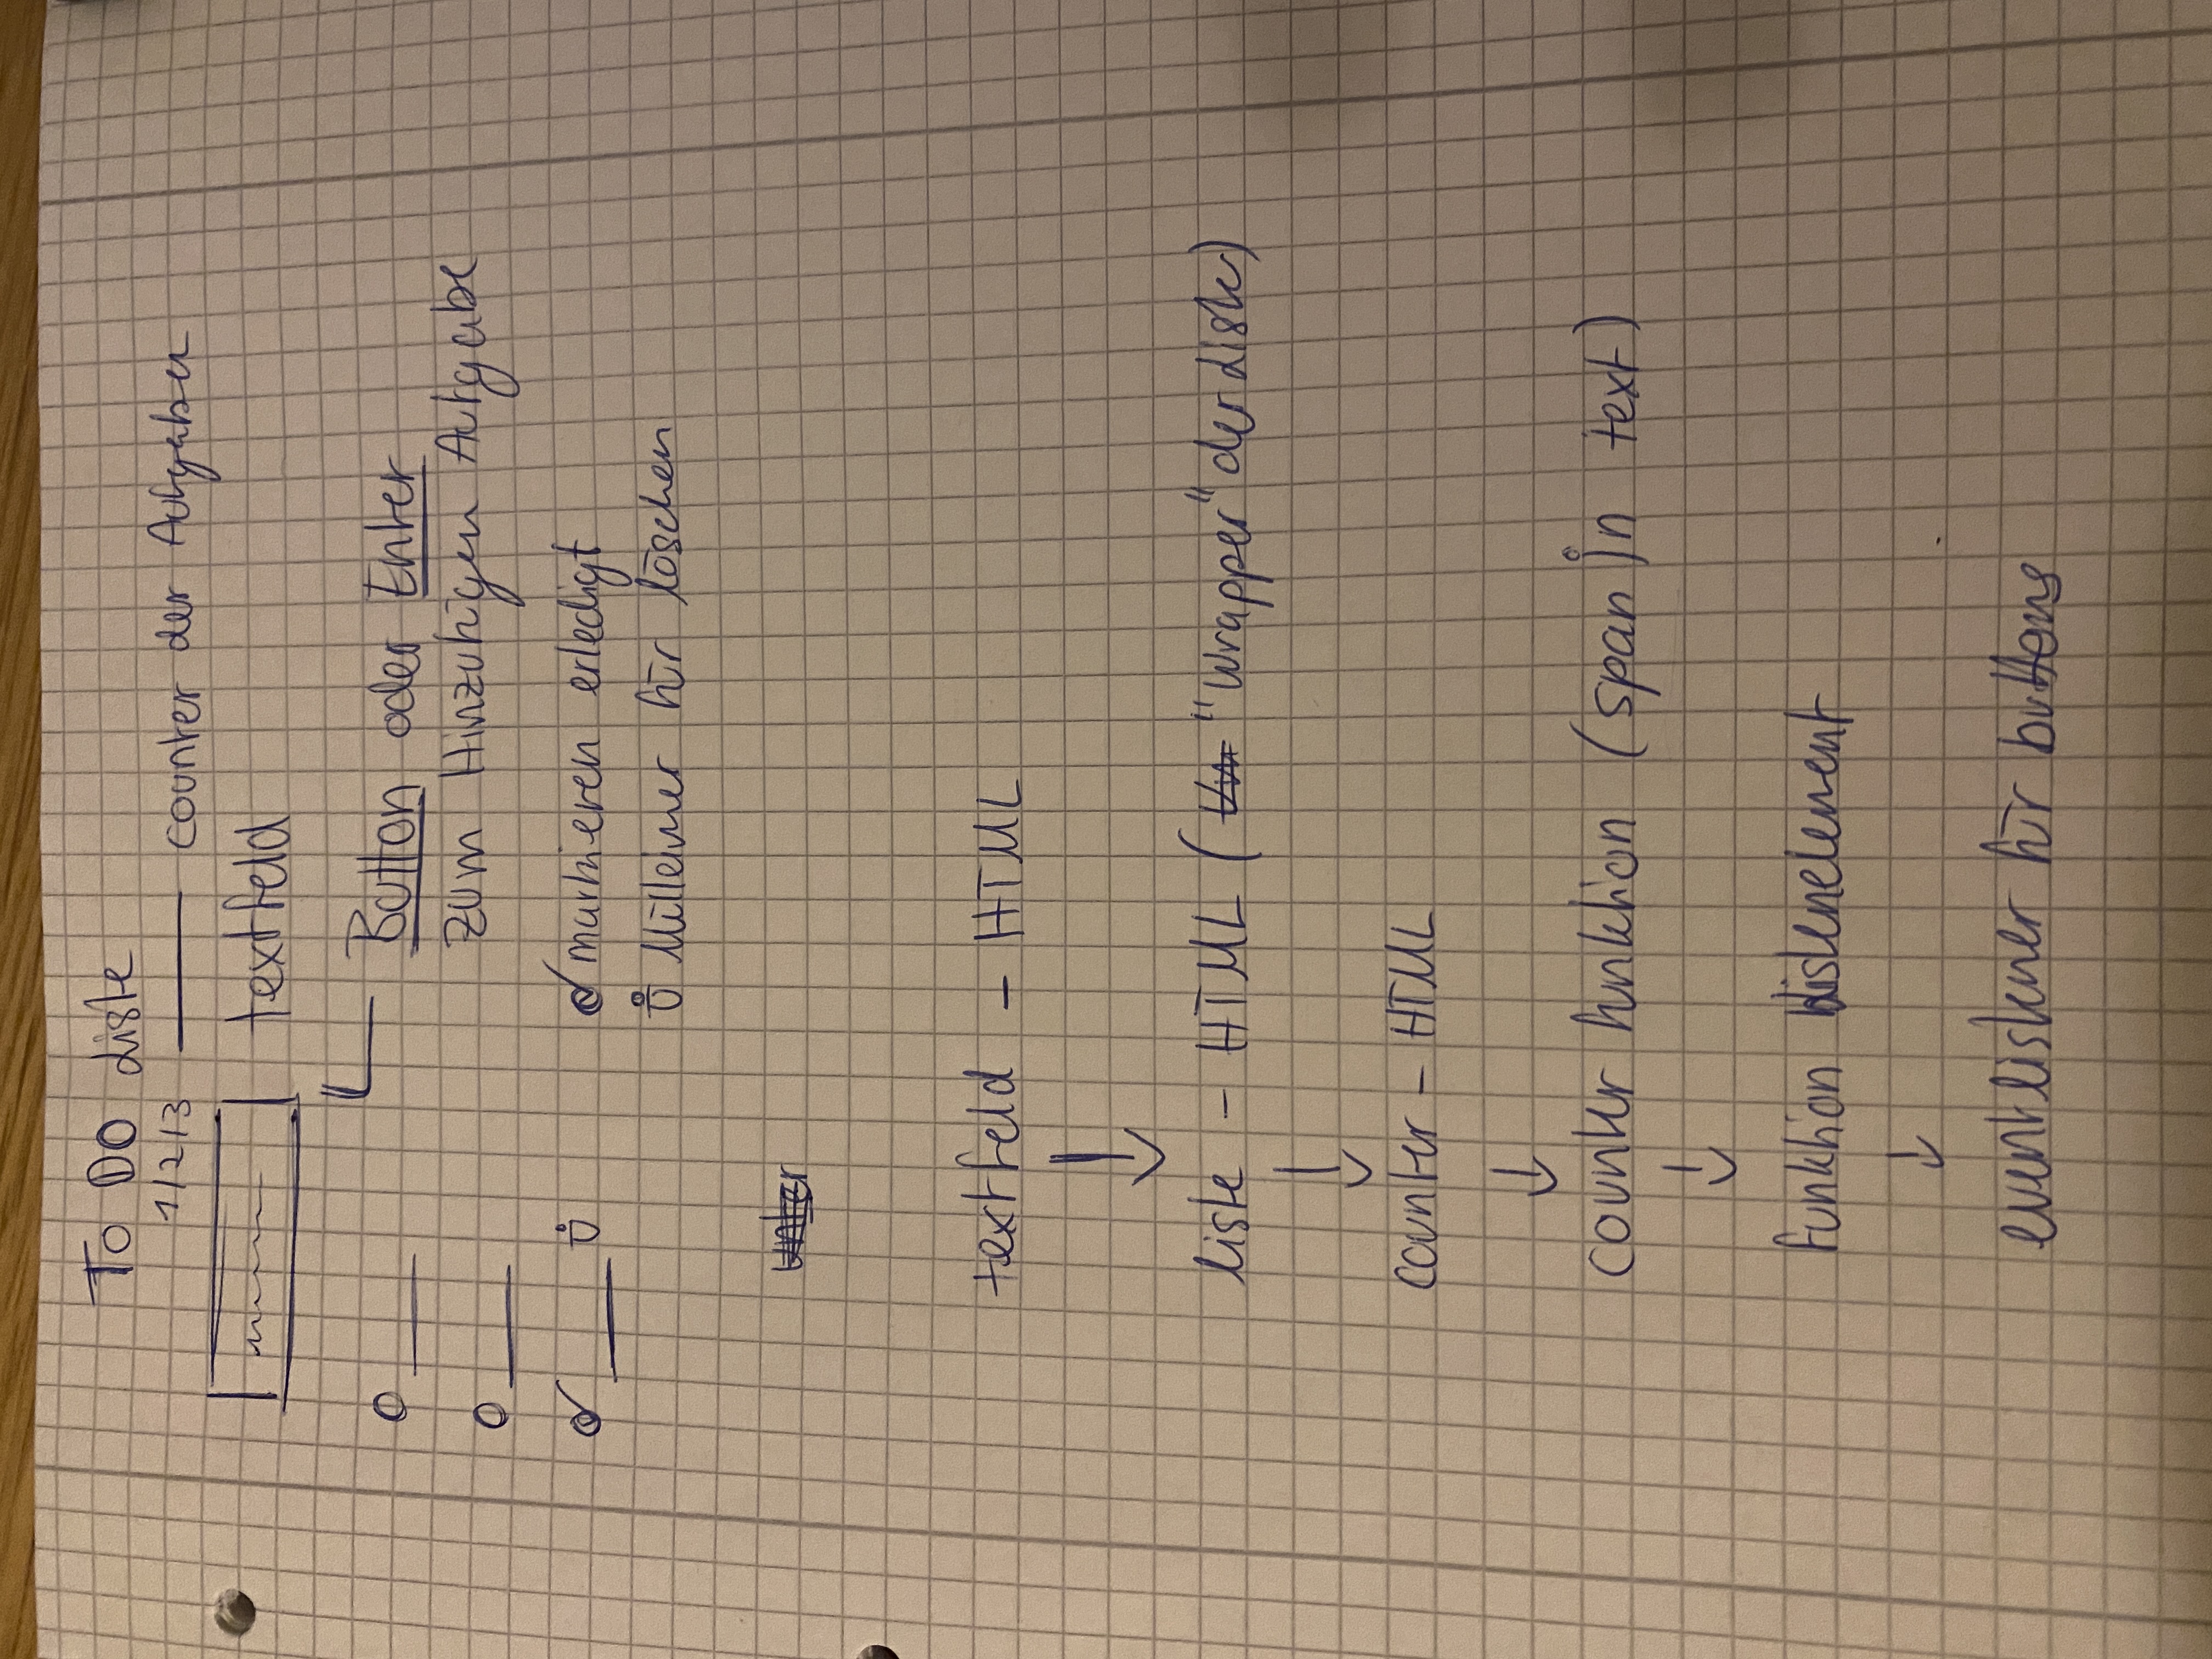 To DO Liste
1/2/3 —— counter der Aufgaben
textfeld
Button oder Enter
zum Hinzufügen Aufgabe
markieren erledigt
Mülleimer für löschen
unter
textfeld - HTML
liste - HTML ( "Wrapper" der Liste)
counter - HTML
counter funktion (span in text)
funktion Listenelement
eventlistener für buttons